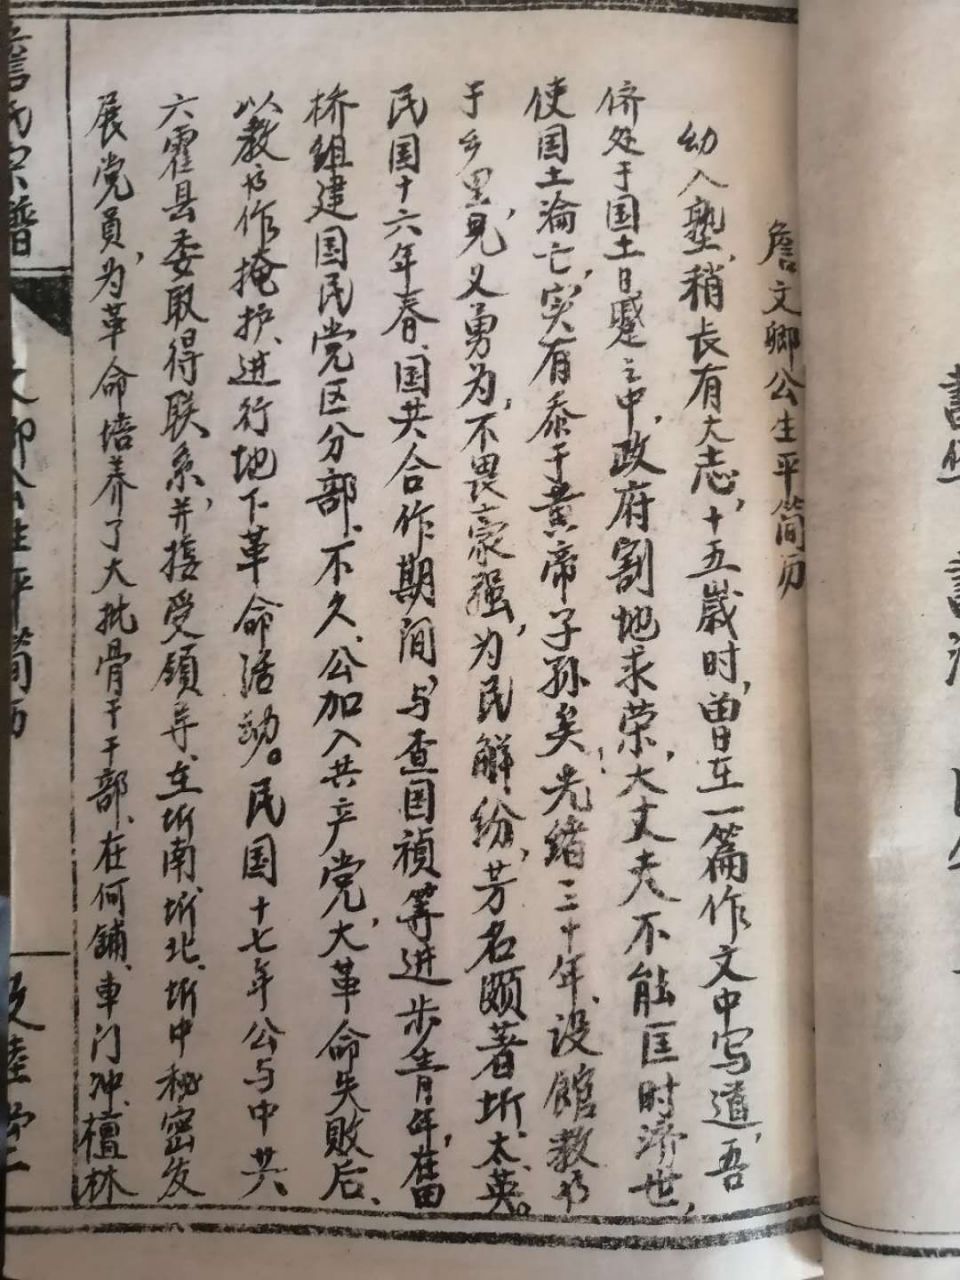 詹文卿公生平简历
幼入塾,稍长有大志,十五岁时,曾在一篇作文中写道,吾
侪处于国土日蹙之中,政府割地求荣,大丈夫不能匡时济世,
使国土沦亡,实有忝于黄帝子孙矣,光绪三十年,设馆教书
于乡里,见义勇为,不畏豪强,为民解纷,芳名颇著圻太英。
民国十六年春,国共合作期间,与查国祯等进步青年,在田
桥组建国民党区分部,不久,公加入共产党,大革命失败后,
以教书作掩护,进行地下革命活动。民国十七年公与中共
六霍县委取得联系,并接受领导,在圻南,圻北,圻中秘密发
展党员,为革命培养了大批骨干干部,在何铺,車门冲,檀林
詹氏宗譜
文卿公生平简历